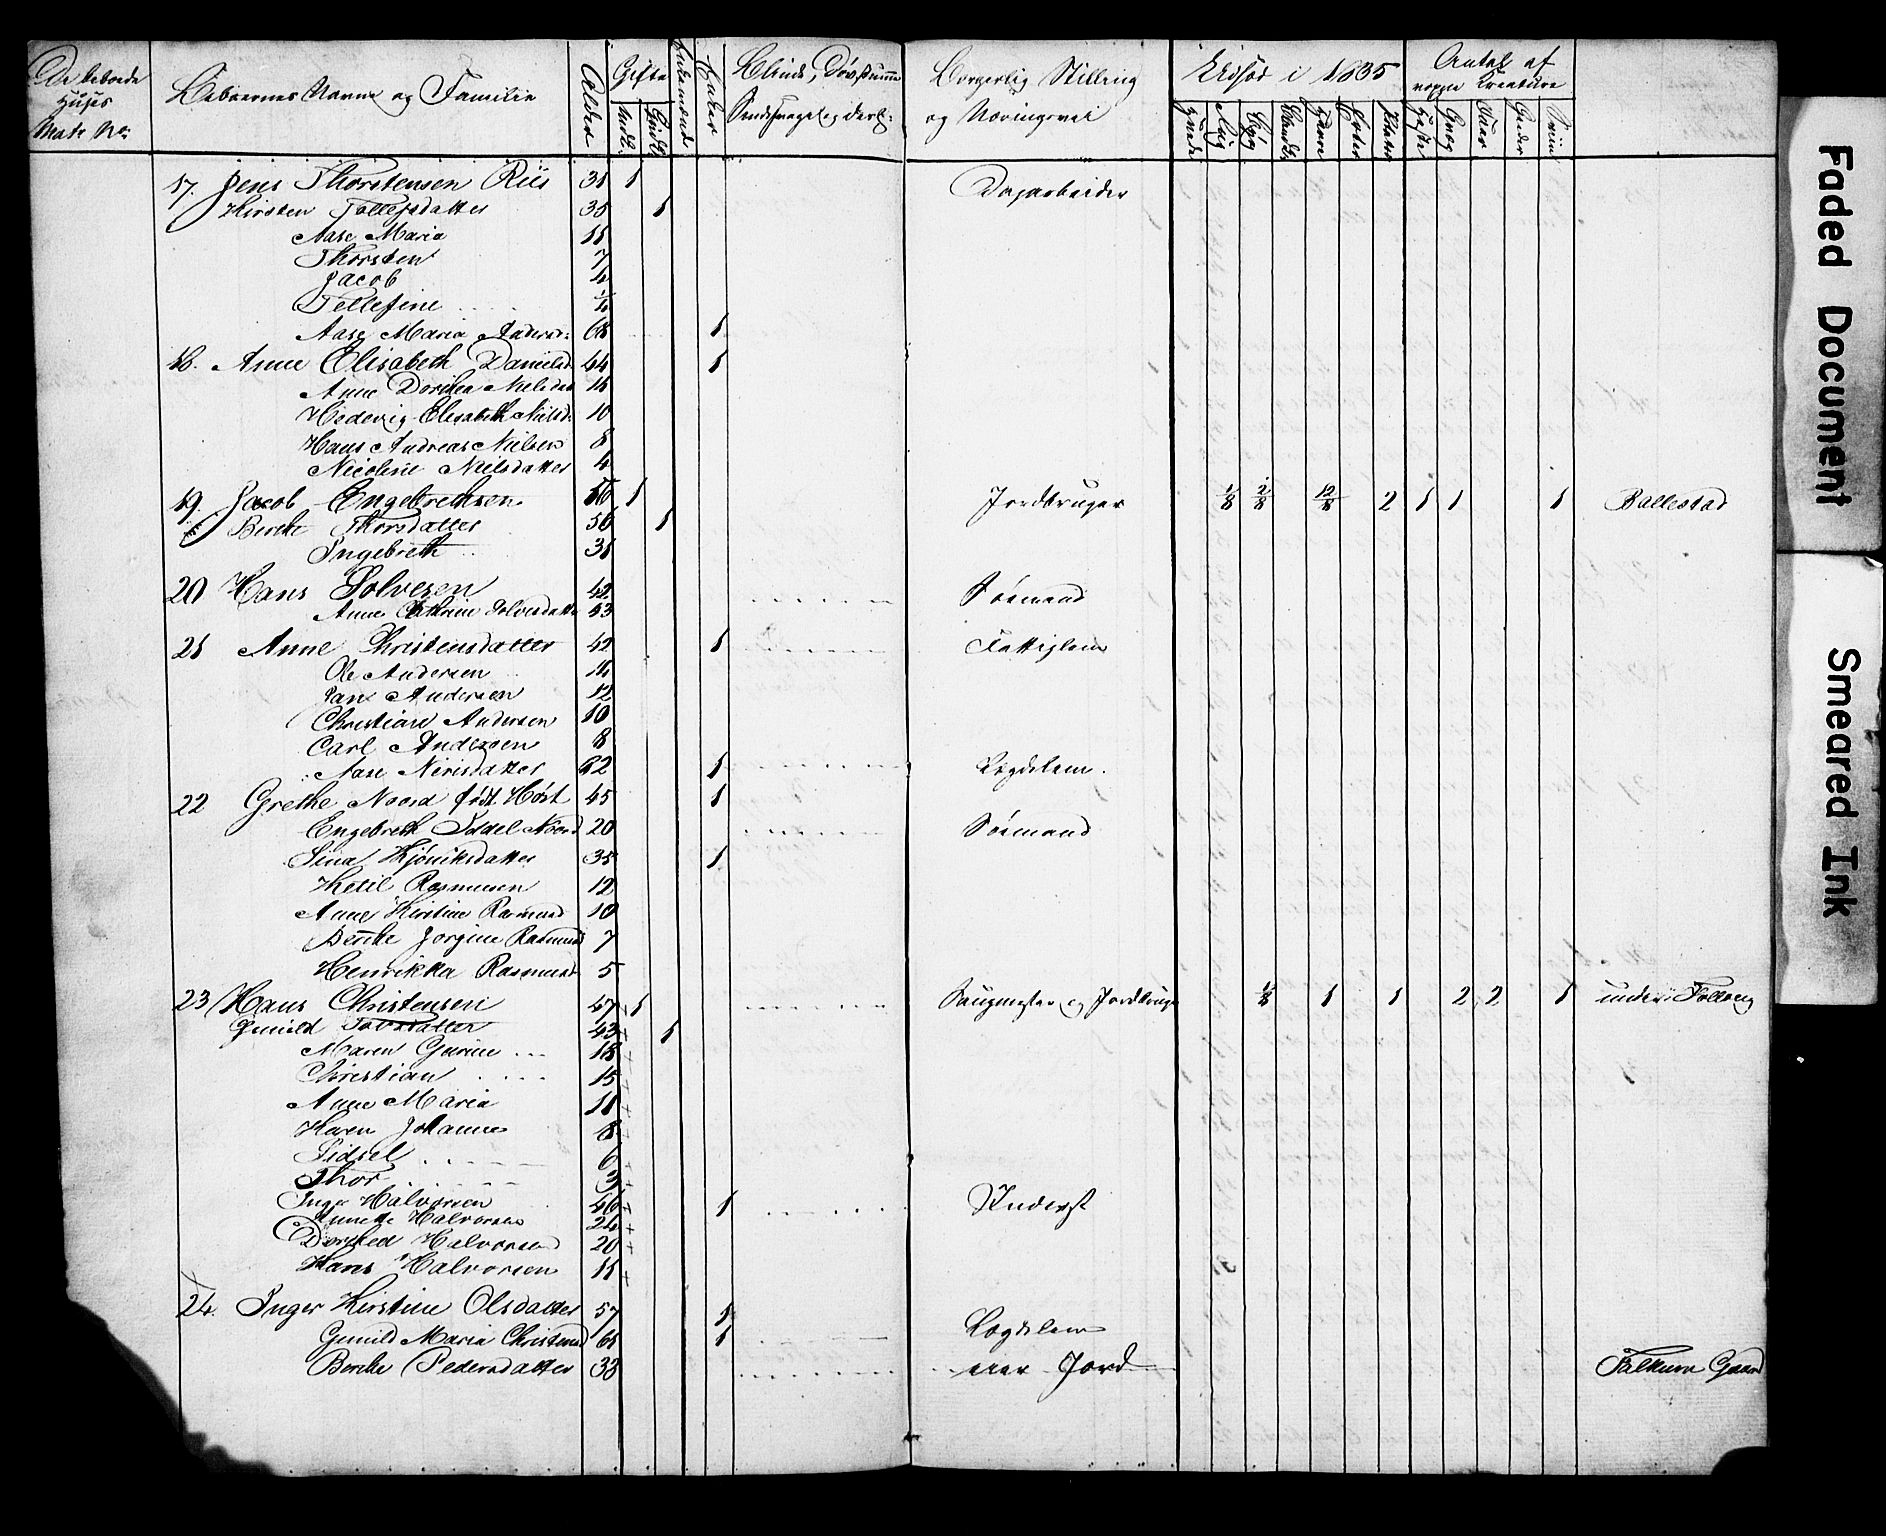 De beboede Huses Matr No:
Beboernes Navne og Familie
Alder
Gifte
Mandk.
Qvindk.
Enkemænd
Enker
Blinde, Døvstumme Sindsvage og desl:
Borgerlig Stilling og Næringsvei
Udsæd i 1835
Hvede
Rug
Byg
Blandk.
Havre
Erter
Poteter
Antal af voxne Kreature
Heste
Qvæg
Faar
Geder
Sviin
17. Jens Thorstensen Riis 31 1 Dagarbeider
Kirsten Tollefsdatter 35 1
Aase Maria 11
Thorsten 7
Jacob 4
Tellefine 1/4
Aase Maria Andersd: 68 1
18. Anne Elisabeth Danielsd 44 1
Anne Dorthea Nielsdat 14
Hedevig Elisabeth Nielsd: 10
Hans Andreas Nielsen 8
Nicoline Nielsdatter 4
19. Jacob Engebrethsen 56 1 Jordbruger 1/8 2/8 12/8 2 1 1 1 Ballestad
Berthe Thorsdatter 56 1
Ingebreth 31
20 Hans Solvesen 42 Sømand
Anne Cathrine Solvesdatte 43
21 Anne Christensdatter 42 1 Fattiglem
Ole Andersen 14
Jans Andersen 12
Christian Andersen 10
Carl Andersen 8
Aase Nerisdatter 62 1 Lægdslem.
22 Grethe Noord født Høst 45 1
Engebreth Iddel Noord 20 Sømand
Sina Kjøniksdatter 35 1
Ketil Rasmusen 12
Anne Kirstine Rasmusd 10
Berthe Jorgine Rasmusd 7
Henrikka Rasmusd 5
23 Hans Christensen 47 1 Saugmester og Jordbruge 1/8 1 1 2 2 1 under Follvig
Gunild Torsdatter 43 1
Maren Gurine 18
Christian 15
Anne Maria 11
Karen Johanne 8
Sidsel 6
Thor 3
Inger Halvorsen 46 1 Inderst
Annette Halvorsen 24
Dorthea Halvorsen 20
Hans Halvorsen 11
24. Inger Kirstine Olsdatter 57 1
Gunild Maria Christensd 61 1 Lægdslem
Berthe Pedersdatter 38 eier Jord Falkum Gaard
Faded Document
Smeared Ink